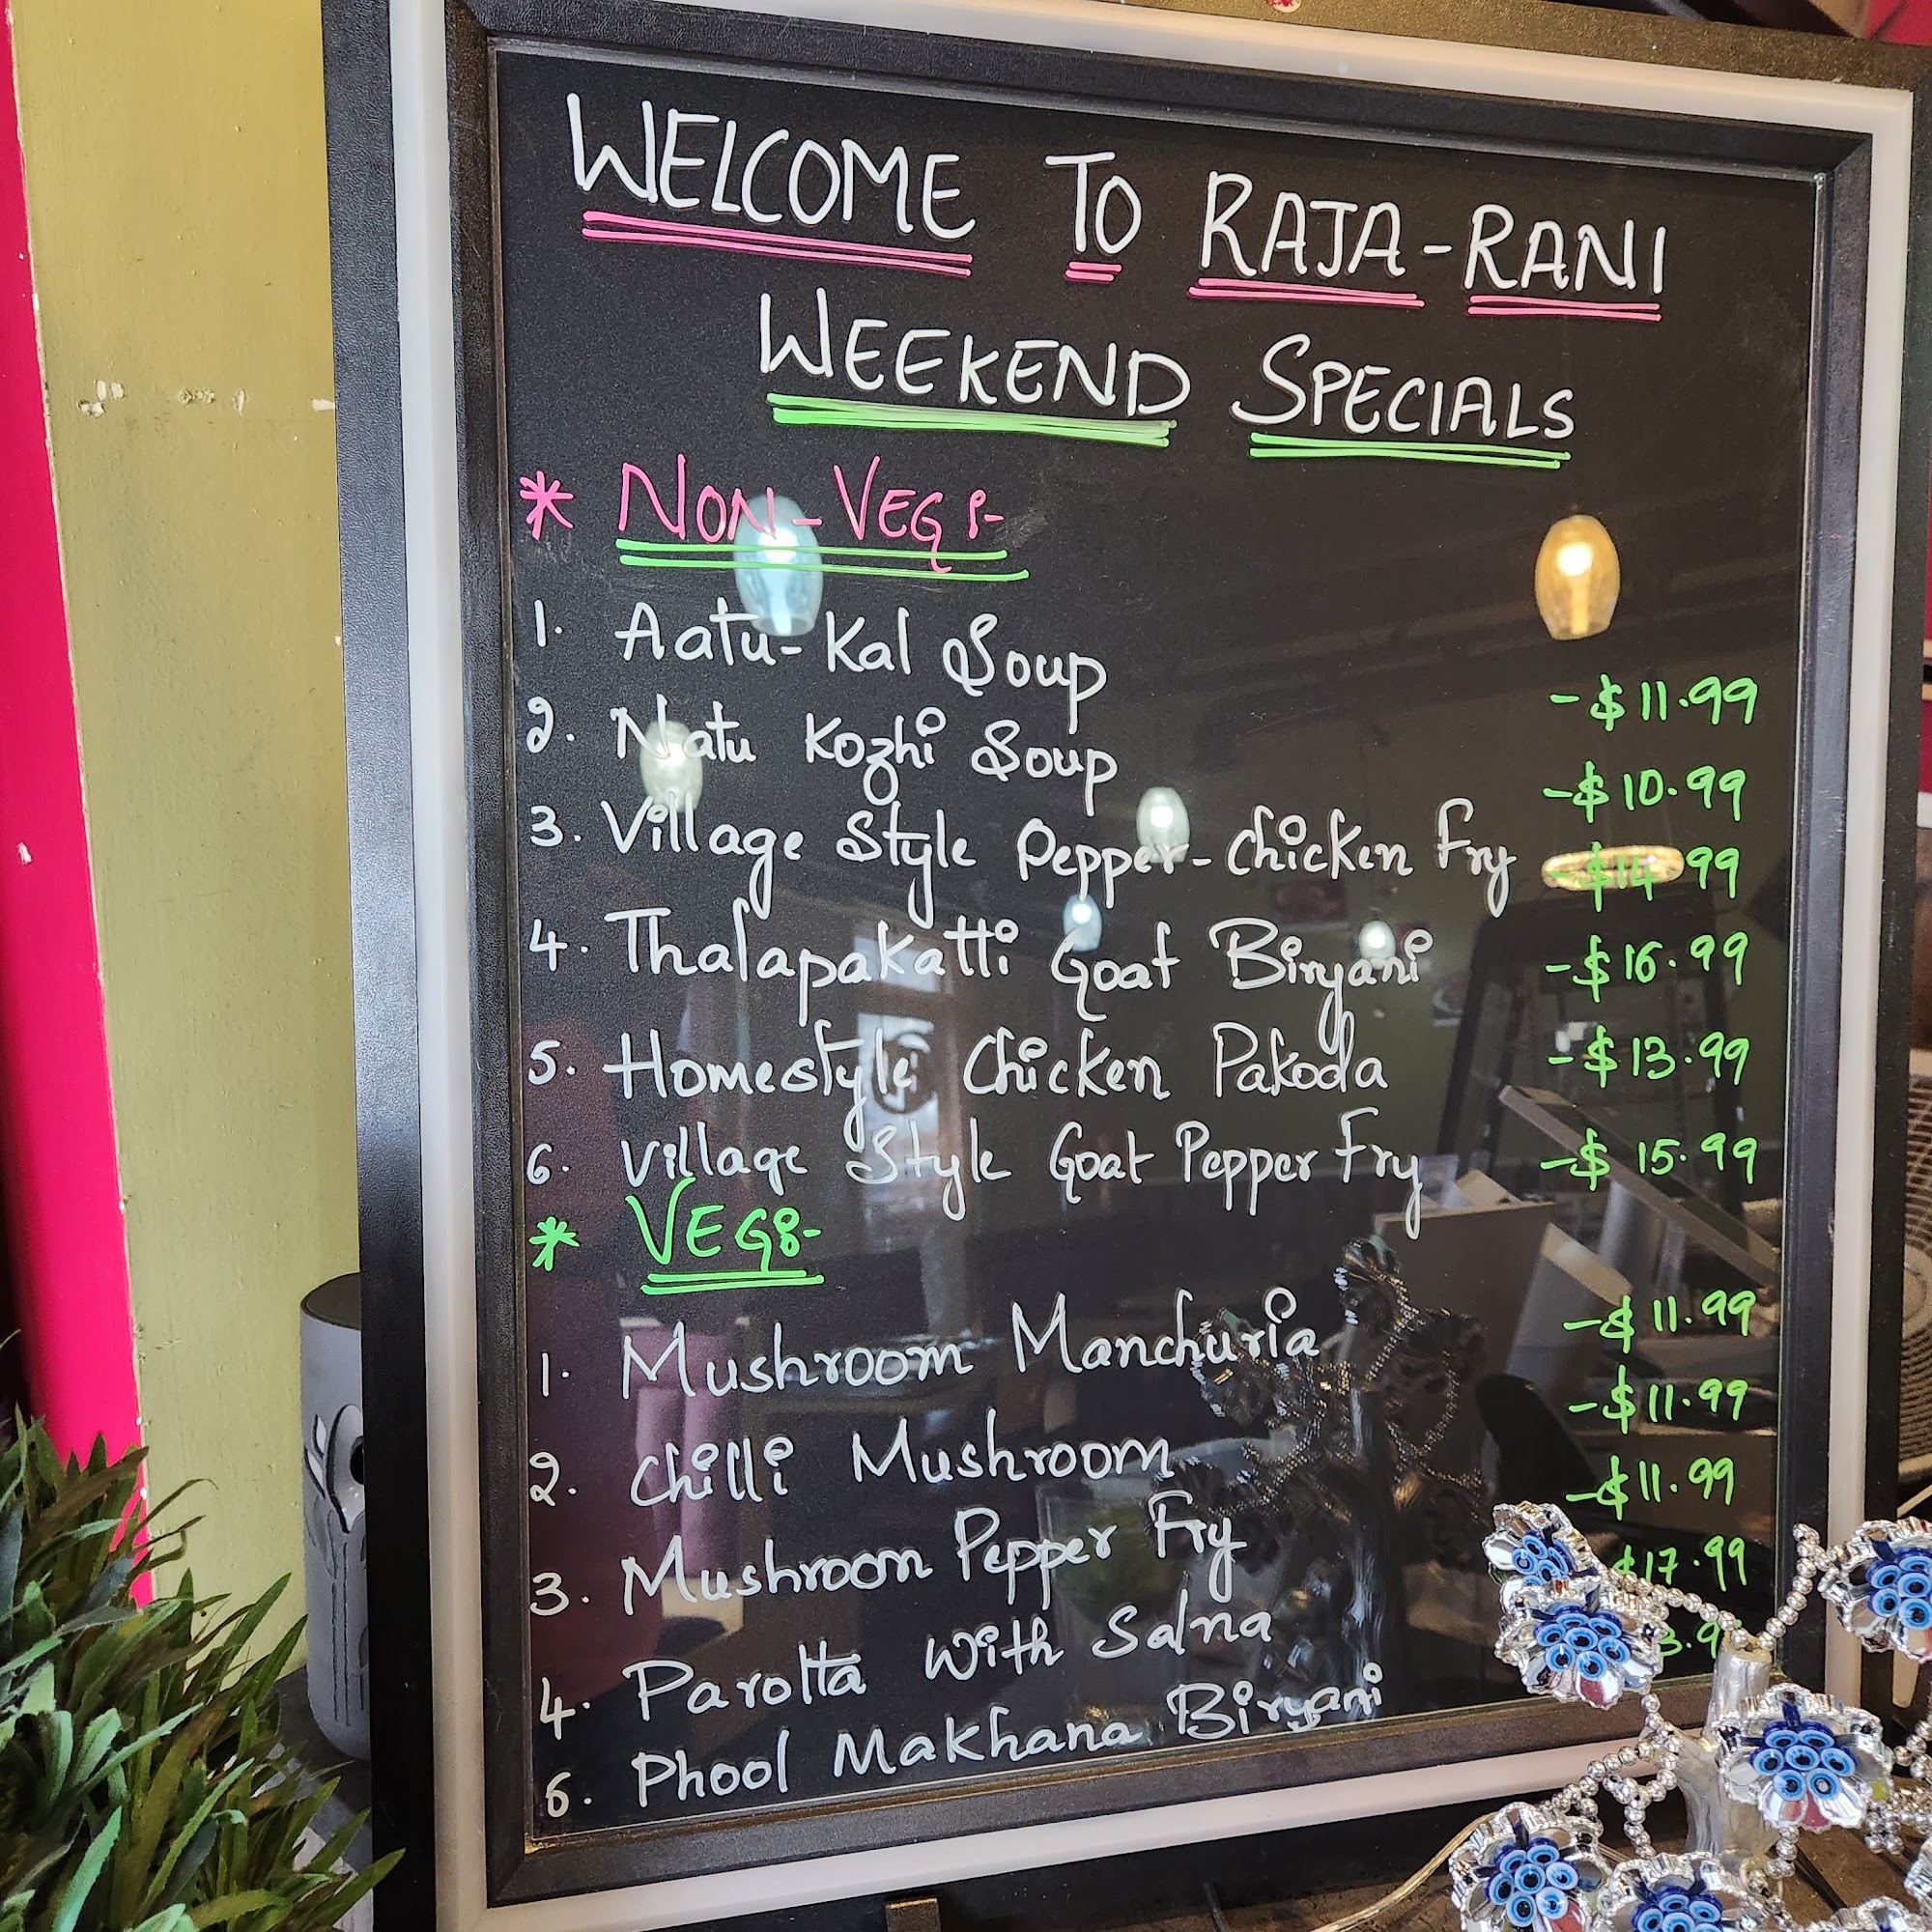 WELCOME TO RAJA-RANI
WEEKEND SPECIALS
* NON-VEG:-
1. Aatu-Kal Soup -$11.99
2. Natu Kozhi Soup -$10.99
3. Village Style Pepper-Chicken Fry -$14.99
4. Thalapakatti Goat Biryani -$16.99
5. Homestyle Chicken Pakoda -$13.99
6. Village Style Goat Pepper Fry -$15.99
* VEG:-
1. Mushroom Manchuria -$11.99
2. Chilli Mushroom -$11.99
3. Mushroom Pepper Fry -$11.99
4. Parotta With Salna $17.99
6. Phool Makhana Biryani